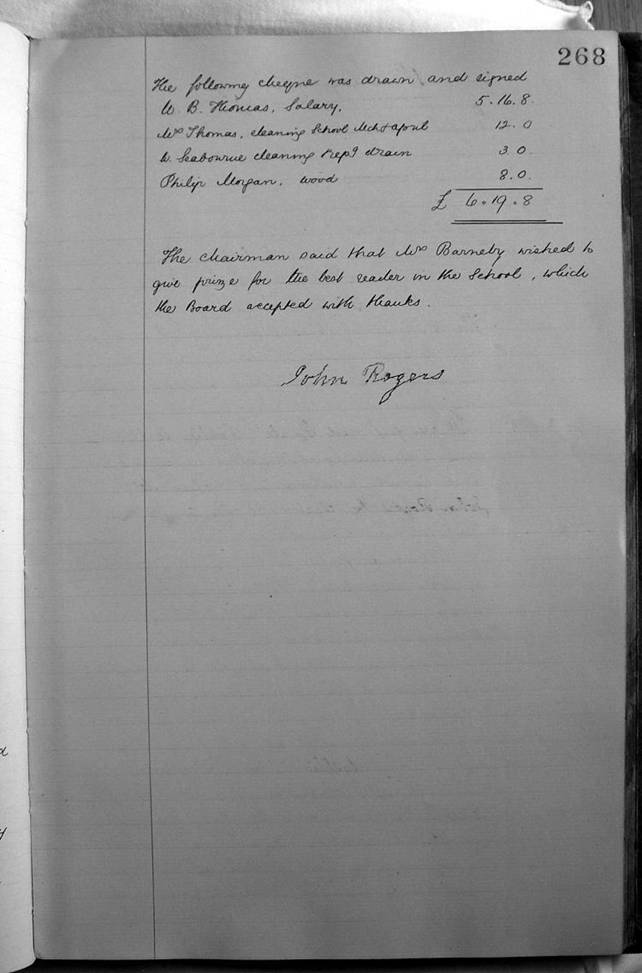 268
The following cheque was drawn and signed
W. B. Thomas, Salary, 5.16.8.
Mrs Thomas, cleaning School Mch & April 12.0
W. Seabourne cleaning drain 3.0.
Philip Morgan, wood 8.0.
£ 6.19.8
The chairman said that Mrs Barneby wished to
give prize for the best reader in the School, which
the Board accepted with thanks.
John Rogers